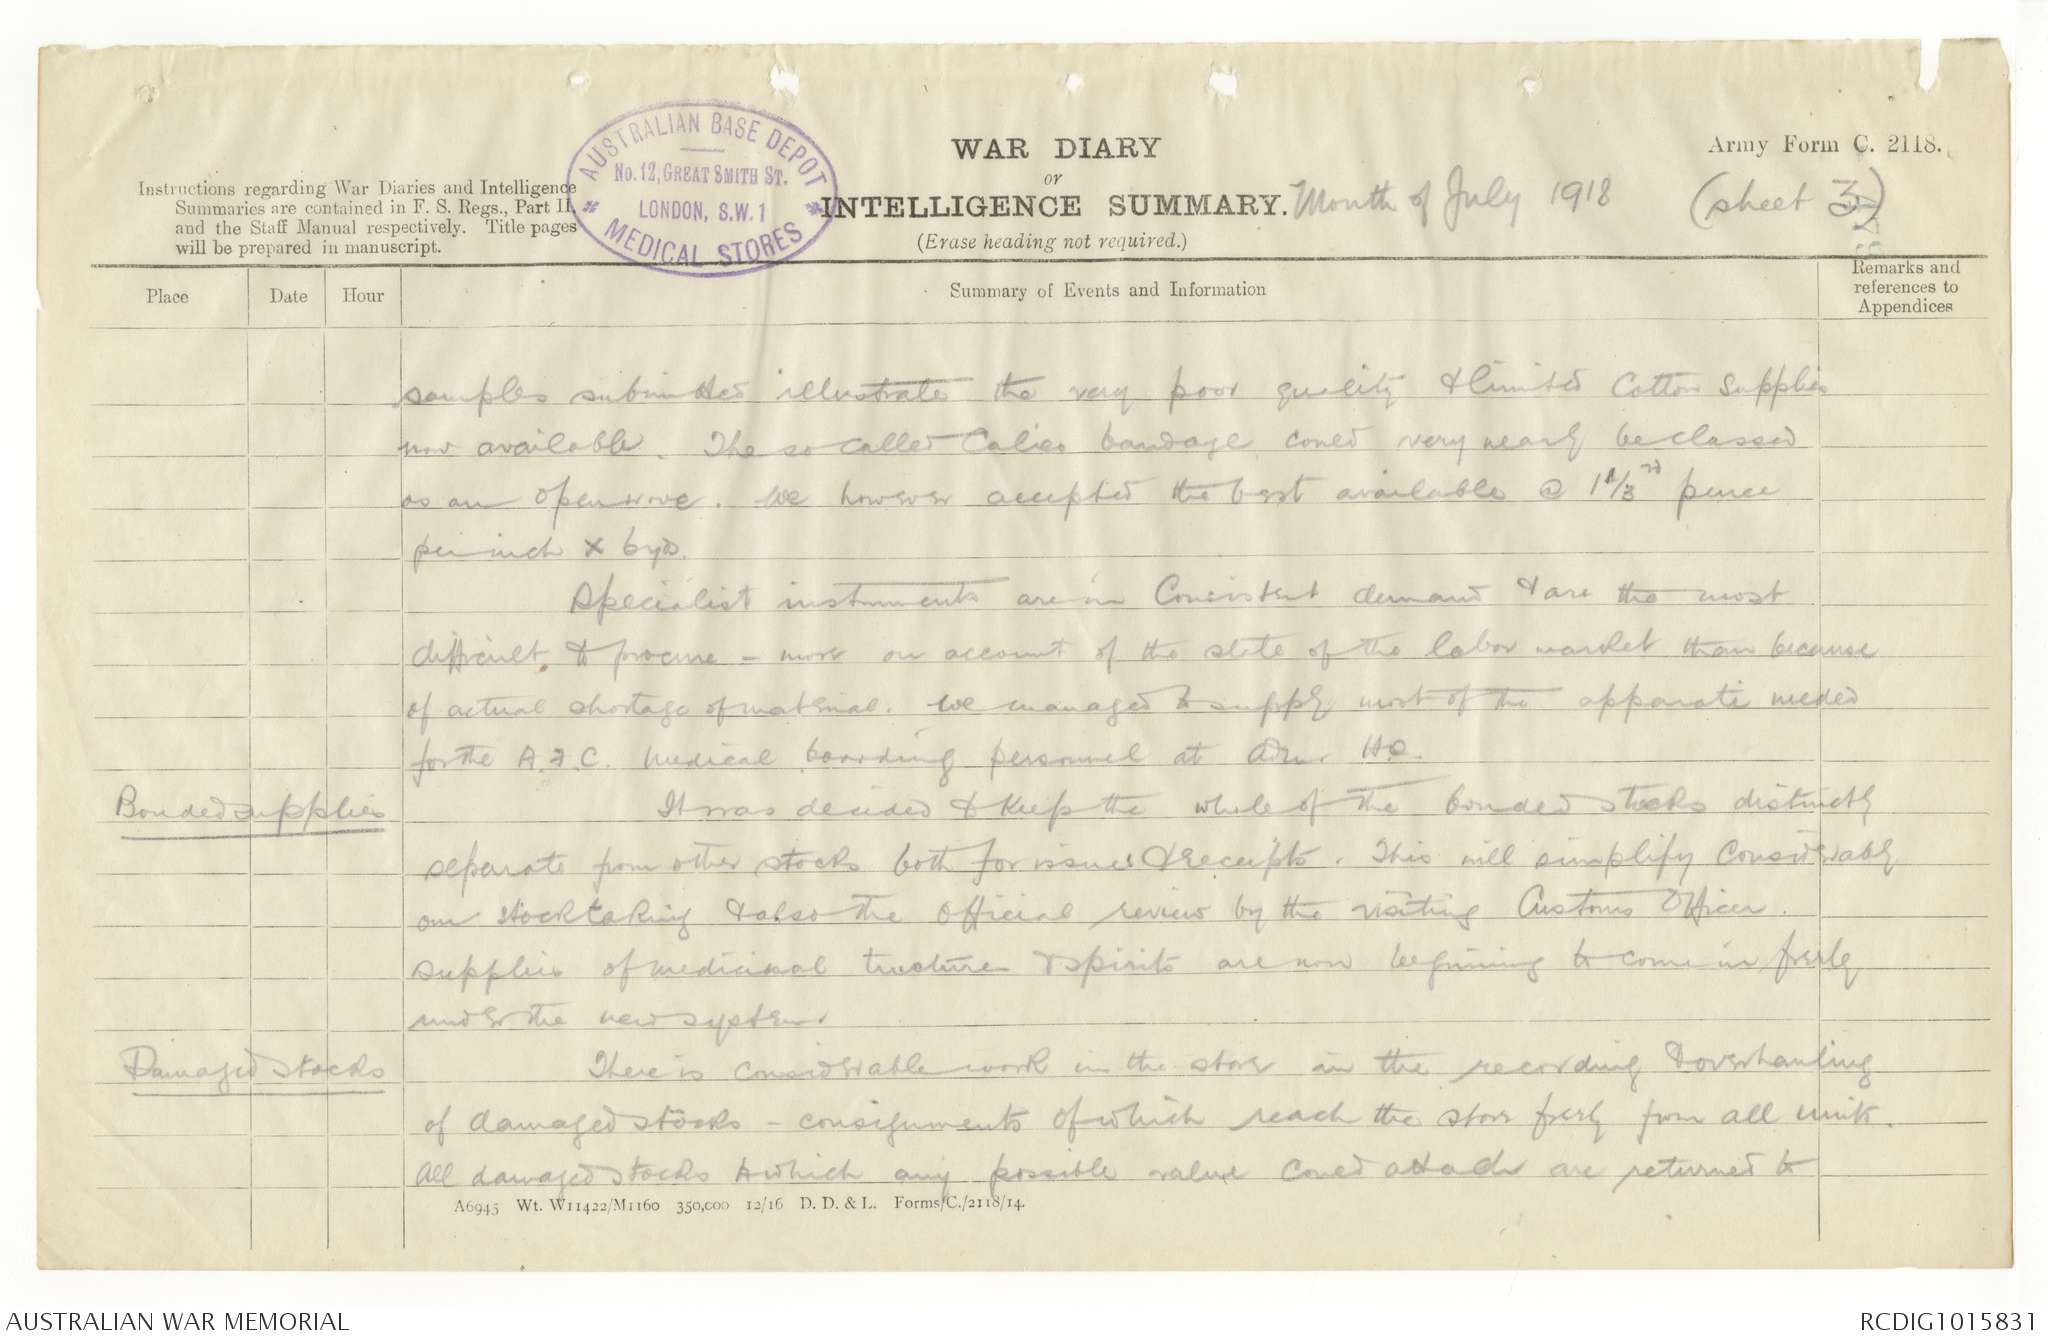 AUSTRALIAN BASE DEPOT
No. 12, GREAT SMITH ST.
LONDON, S.W.1
MEDICAL STORES
Army Form C. 2118.
WAR DIARY
or
INTELLIGENCE SUMMARY. Month of July 1918 (sheet 3)
(Erase heading not required.)
Instructions regarding War Diaries and Intelligence
Summaries are contained in F. S. Regs., Part II.
and the Staff Manual respectively. Title pages
will be prepared in manuscript.
Place Date Hour Summary of Events and Information Remarks and
references to
Appendices
samples submitted illustrate the very poor quality & limited Cotton Supplies
now available. The so called Calico bandage could very nearly be classed
as an open wove. We however accepted the best available @ 1 1/3rd pence
per inch x 6 yds.
Specialist instruments are in Consistent demand & are the most
difficult to procure – more on account of the state of the labor market than because
of actual shortage of material. We managed to supply most of the apparati needed
for the A.F.C. Medical boarding personnel at Adm. HQ.
Bonded supplies It was decided to keep the whole of the bonded stocks distinctly
separate from other stocks both for issues & receipts. This will simplify Considerably
our stocktaking & also the Official review by the visiting Customs Officer.
Supplies of medicinal tinctures & spirits are now beginning to come in freely
under the new system.
Damaged stocks There is considerable work in the store in the recording & overhauling
of damaged stocks – consignments of which reach the store freely from all units.
All damaged stocks to which any possible value could attach are returned to
A6945 Wt. W11422/M1160 350,000 12/16 D. D. & L. Forms/C./2118/14.
AUSTRALIAN WAR MEMORIAL
RCDIG1015831